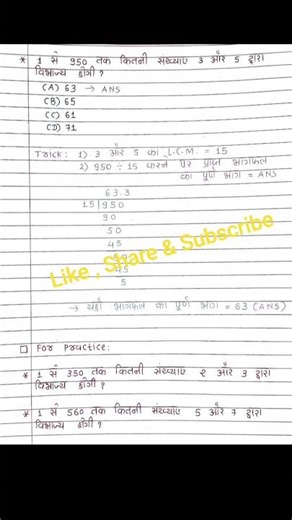 * 1 से 950 तक कितनी संख्याए 3 और 5 द्वारा
विभाज्य होगी ?
(A) 63 → ANS
(B) 65
(C) 61
(D) 71
Trick : 1) 3 और 5 का L.C.M. = 15
2) 950 ÷ 15 करने पर प्राप्त भागफल
का पूर्ण भाग = ANS
63.3
15|950
90
50
45
45
5
Like , Share & Subscribe
→ यहाँ भागफल का पूर्ण भाग = 63 (ANS)
□ For Practice:
* 1 से 350 तक कितनी संख्याए २ और 3 द्वारा
विभाज्य होगी ?
* 1 से 560 तक कितनी संख्याए 5 और 7 द्वारा
विभाज्य होगी ?